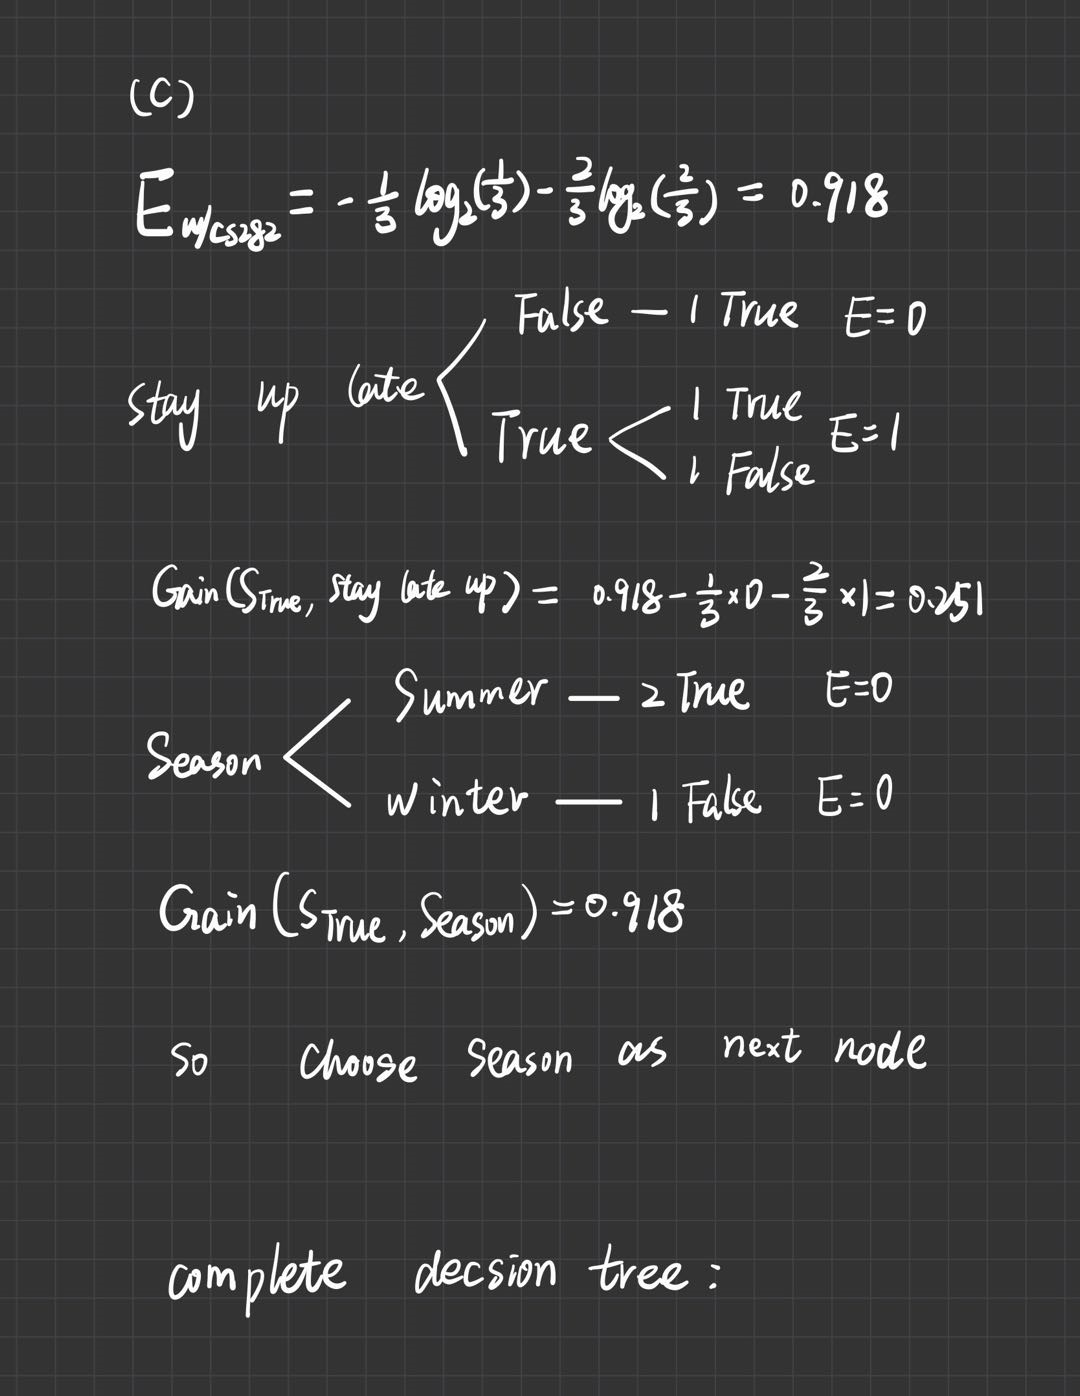 (C)
E w/cs282 = - 1/3 log₂(1/3) - 2/3 log₂(2/3) = 0.918
False — 1 True E=0
stay up late
True < 1 True E=1
1 False
Gain(S True, stay late up) = 0.918 - 1/3 × 0 - 2/3 × 1 = 0.251
Summer — 2 True E=0
Season
winter — 1 False E=0
Gain(S True, Season) = 0.918
so choose season as next node
complete decsion tree: